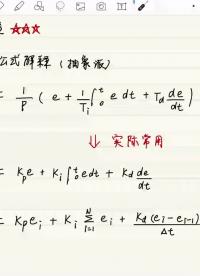 ★★★
公式解释（抽象版）
= 1/P ( e + 1/Ti ∫₀ᵗ e dt + Td de/dt )
⇓ 实际常用
= Kp e + Ki ∫₀ᵗ e dt + Kd de/dt
= Kp ei + Ki Σ_{i=1}^{N} ei + Kd (ei - ei-1)/Δt